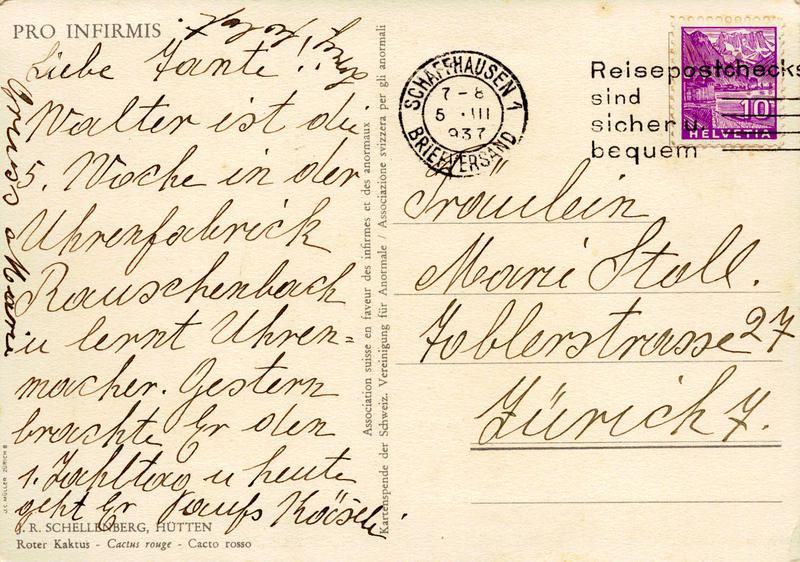 PRO INFIRMIS
Liebe Tante!
Walter ist die
5. Woche in der
Uhrenfabrick
Rauschenbach
u lernt Uhren=
macher. Gestern
brachte Er den
1. Zahltag u heute
geht Er
R. SCHELLENBERG, HÜTTEN
Roter Kaktus - Cactus rouge - Cacto rosso
J.C. MÜLLER ZÜRICH 8
Association suisse en faveur des infirmes et des anormaux
Kartenspende der Schweiz. Vereinigung für Anormale / Associazione svizzera per gli anormali
SCHAFFHAUSEN 1
7-8
5 .III
937
BRIEFVERSAND
Reisepostchecks
sind
sicher u.
bequem
10
HELVETIA
Fräulein
Marie Stoll.
Toblerstrasse 27
Zürich 7.